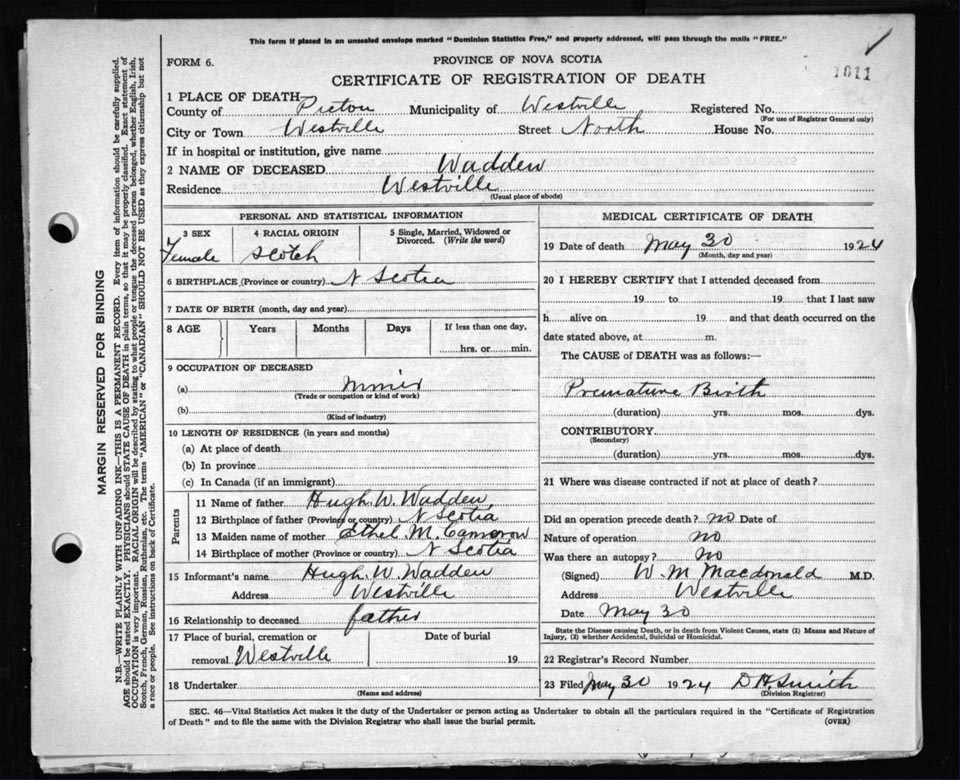 This form if placed in an unsealed envelope marked "Dominion Statistics Free," and properly addressed, will pass through the mails "FREE."
FORM 6.
PROVINCE OF NOVA SCOTIA
1011
CERTIFICATE OF REGISTRATION OF DEATH
1 PLACE OF DEATH—
County of Pictou Municipality of Westville Registered No.
(For use of Registrar General only)
City or Town Westville Street North House No.
If in hospital or institution, give name
2 NAME OF DECEASED Wadden
Residence Westville
(Usual place of abode)
PERSONAL AND STATISTICAL INFORMATION
3 SEX Female
4 RACIAL ORIGIN Scotch
5 Single, Married, Widowed or Divorced. (Write the word)
6 BIRTHPLACE (Province or country) N Scotia
7 DATE OF BIRTH (month, day and year)
8 AGE Years Months Days If less than one day, hrs. or min.
9 OCCUPATION OF DECEASED
(a)
(Trade or occupation or kind of work)
(b)
(Kind of industry)
10 LENGTH OF RESIDENCE (in years and months)
(a) At place of death
(b) In province
(c) In Canada (if an immigrant)
Parents
11 Name of father Hugh W. Wadden
12 Birthplace of father (Province or country) N Scotia
13 Maiden name of mother Ethel M. Cameron
14 Birthplace of mother (Province or country) N Scotia
15 Informant's name Hugh W. Wadden
Address Westville
16 Relationship to deceased father
17 Place of burial, cremation or removal Westville
Date of burial
19
18 Undertaker
(Name and address)
MEDICAL CERTIFICATE OF DEATH
19 Date of death May 30 1924
(Month, day and year)
20 I HEREBY CERTIFY that I attended deceased from
19 to 19 that I last saw
h alive on 19 and that death occurred on the
date stated above, at m.
The CAUSE of DEATH was as follows:—
Premature Birth
(duration) yrs. mos. dys.
CONTRIBUTORY
(Secondary)
(duration) yrs. mos. dys.
21 Where was disease contracted if not at place of death?
Did an operation precede death? no Date of
Nature of operation no
Was there an autopsy? no
(Signed) W. M. Macdonald M.D.
Address Westville
Date May 30
State the Disease causing Death, or in death from Violent Causes, state (1) Means and Nature of
Injury, (2) whether Accidental, Suicidal or Homicidal.
22 Registrar's Record Number
23 Filed May 30 1924 D H. Smith
(Division Registrar)
SEC. 46—Vital Statistics Act makes it the duty of the Undertaker or person acting as Undertaker to obtain all the particulars required in the "Certificate of Registration
of Death" and to file the same with the Division Registrar who shall issue the burial permit.
(OVER)
MARGIN RESERVED FOR BINDING
N.B.—WRITE PLAINLY WITH UNFADING INK—THIS IS A PERMANENT RECORD. Every item of information should be carefully supplied.
AGE should be stated EXACTLY. PHYSICIANS should STATE CAUSE OF DEATH in plain terms, so that it may be properly classified. Exact statement of
OCCUPATION is very important. RACIAL ORIGIN will be described by stating to what people or tongue the deceased person belonged, whether English, Irish,
Scotch, French, German, Russian, Ruthenian, etc. The terms "AMERICAN" or "CANADIAN" SHOULD NOT BE USED as they express citizenship but not
a race or people. See instructions on back of Certificate.